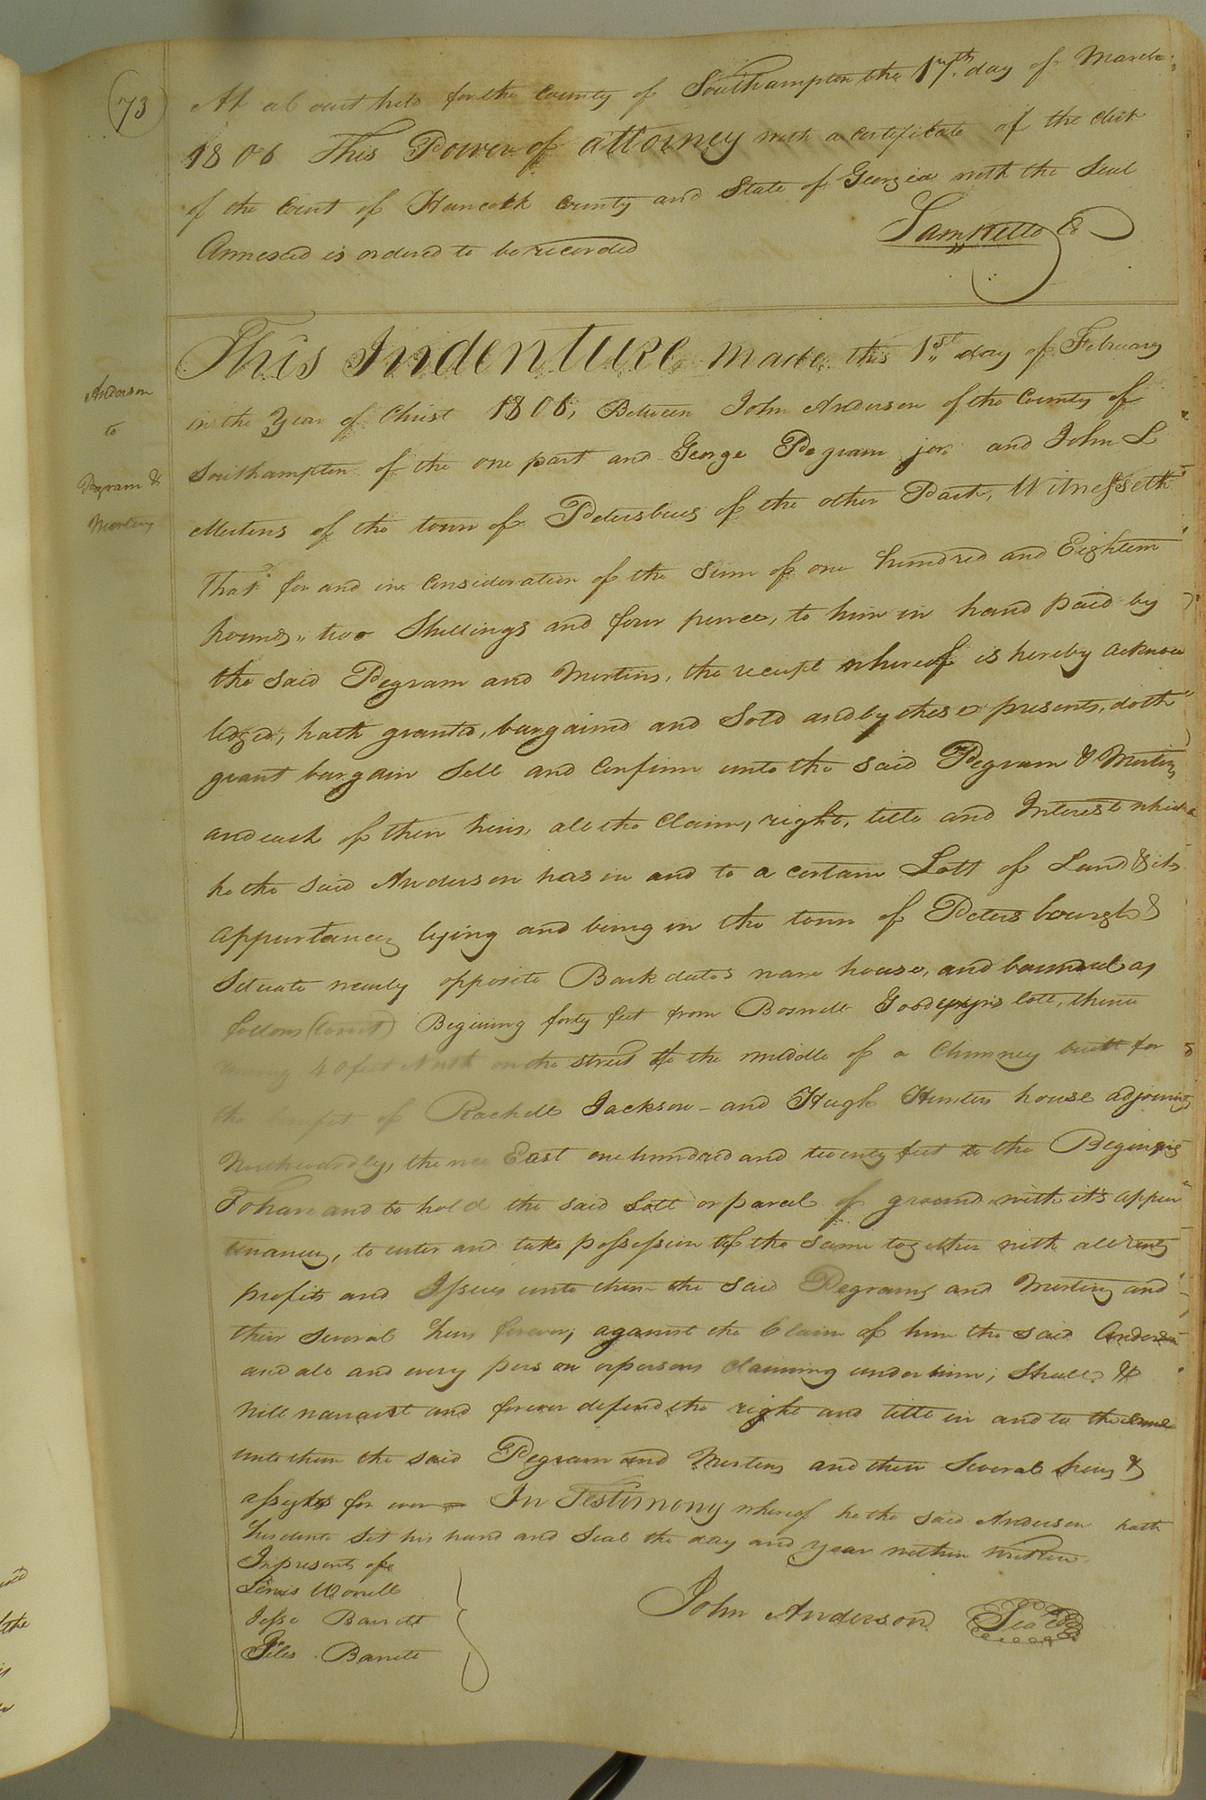 73
At a Court held for the County of Southampton the 17th day of March
1806 This Power of attorney with a certificate of the clerk
of the Court of Hancock County and State of Georgia with the Seal
Annexed is ordered to be recorded
Anderson
to
Pegram &
This Indenture made this 1st day of February
in the Year of Christ 1806, Between John Anderson of the County of
Southampton of the one part and George Pegram jor and John L
of the town of Petersburg of the other Part, Witnesseth
That for and in Consideration of the Sum of one hundred and Eighteen
pounds, two Shillings and four pence, to him in hand paid by
the said Pegram and Mertins, the receipt whereof is hereby acknow
ledged, hath granted, bargained and Sold and by these presents, doth
grant bargain Sell and Confirm unto the said Pegram & Mertins
and each of their heirs, all the Claim, right, title and Interest which
he the said Anderson has in and to a certain Lott of Land & its
appurtances lying and being in the town of Petersbourgh &
Situate nearly opposite house, and bounded as
follows (towit) Begining forty feet from Boswell Goodwyn's lott, thence
40 feet North on the street to the middle of a Chimney built for
the benefit of Rachell Jackson - and Hugh Hunters house adjoining
Northwardly, thence East one hundred and twenty feet to the Begining
To have and to hold the said Lott or parcel of ground with it's appur
tenances, to enter and take possession of the same together with all rents
profits and Issues unto them the said Pegram and Mertins and
their several heirs forever, against the Claim of him the said Anderson
and all and every person or persons claiming under him; Shall &
will warrant and forever defend the right and title in and to the same
unto them the said Pegram and Mertins and their Several heirs &
assigns for ever - In Testimony whereof he the said Anderson hath
hereunto Set his hand and Seal the day and year within written
In presents of
Lewis Worrell
Jesse Barrett
Giles Barrett
John Anderson Seal